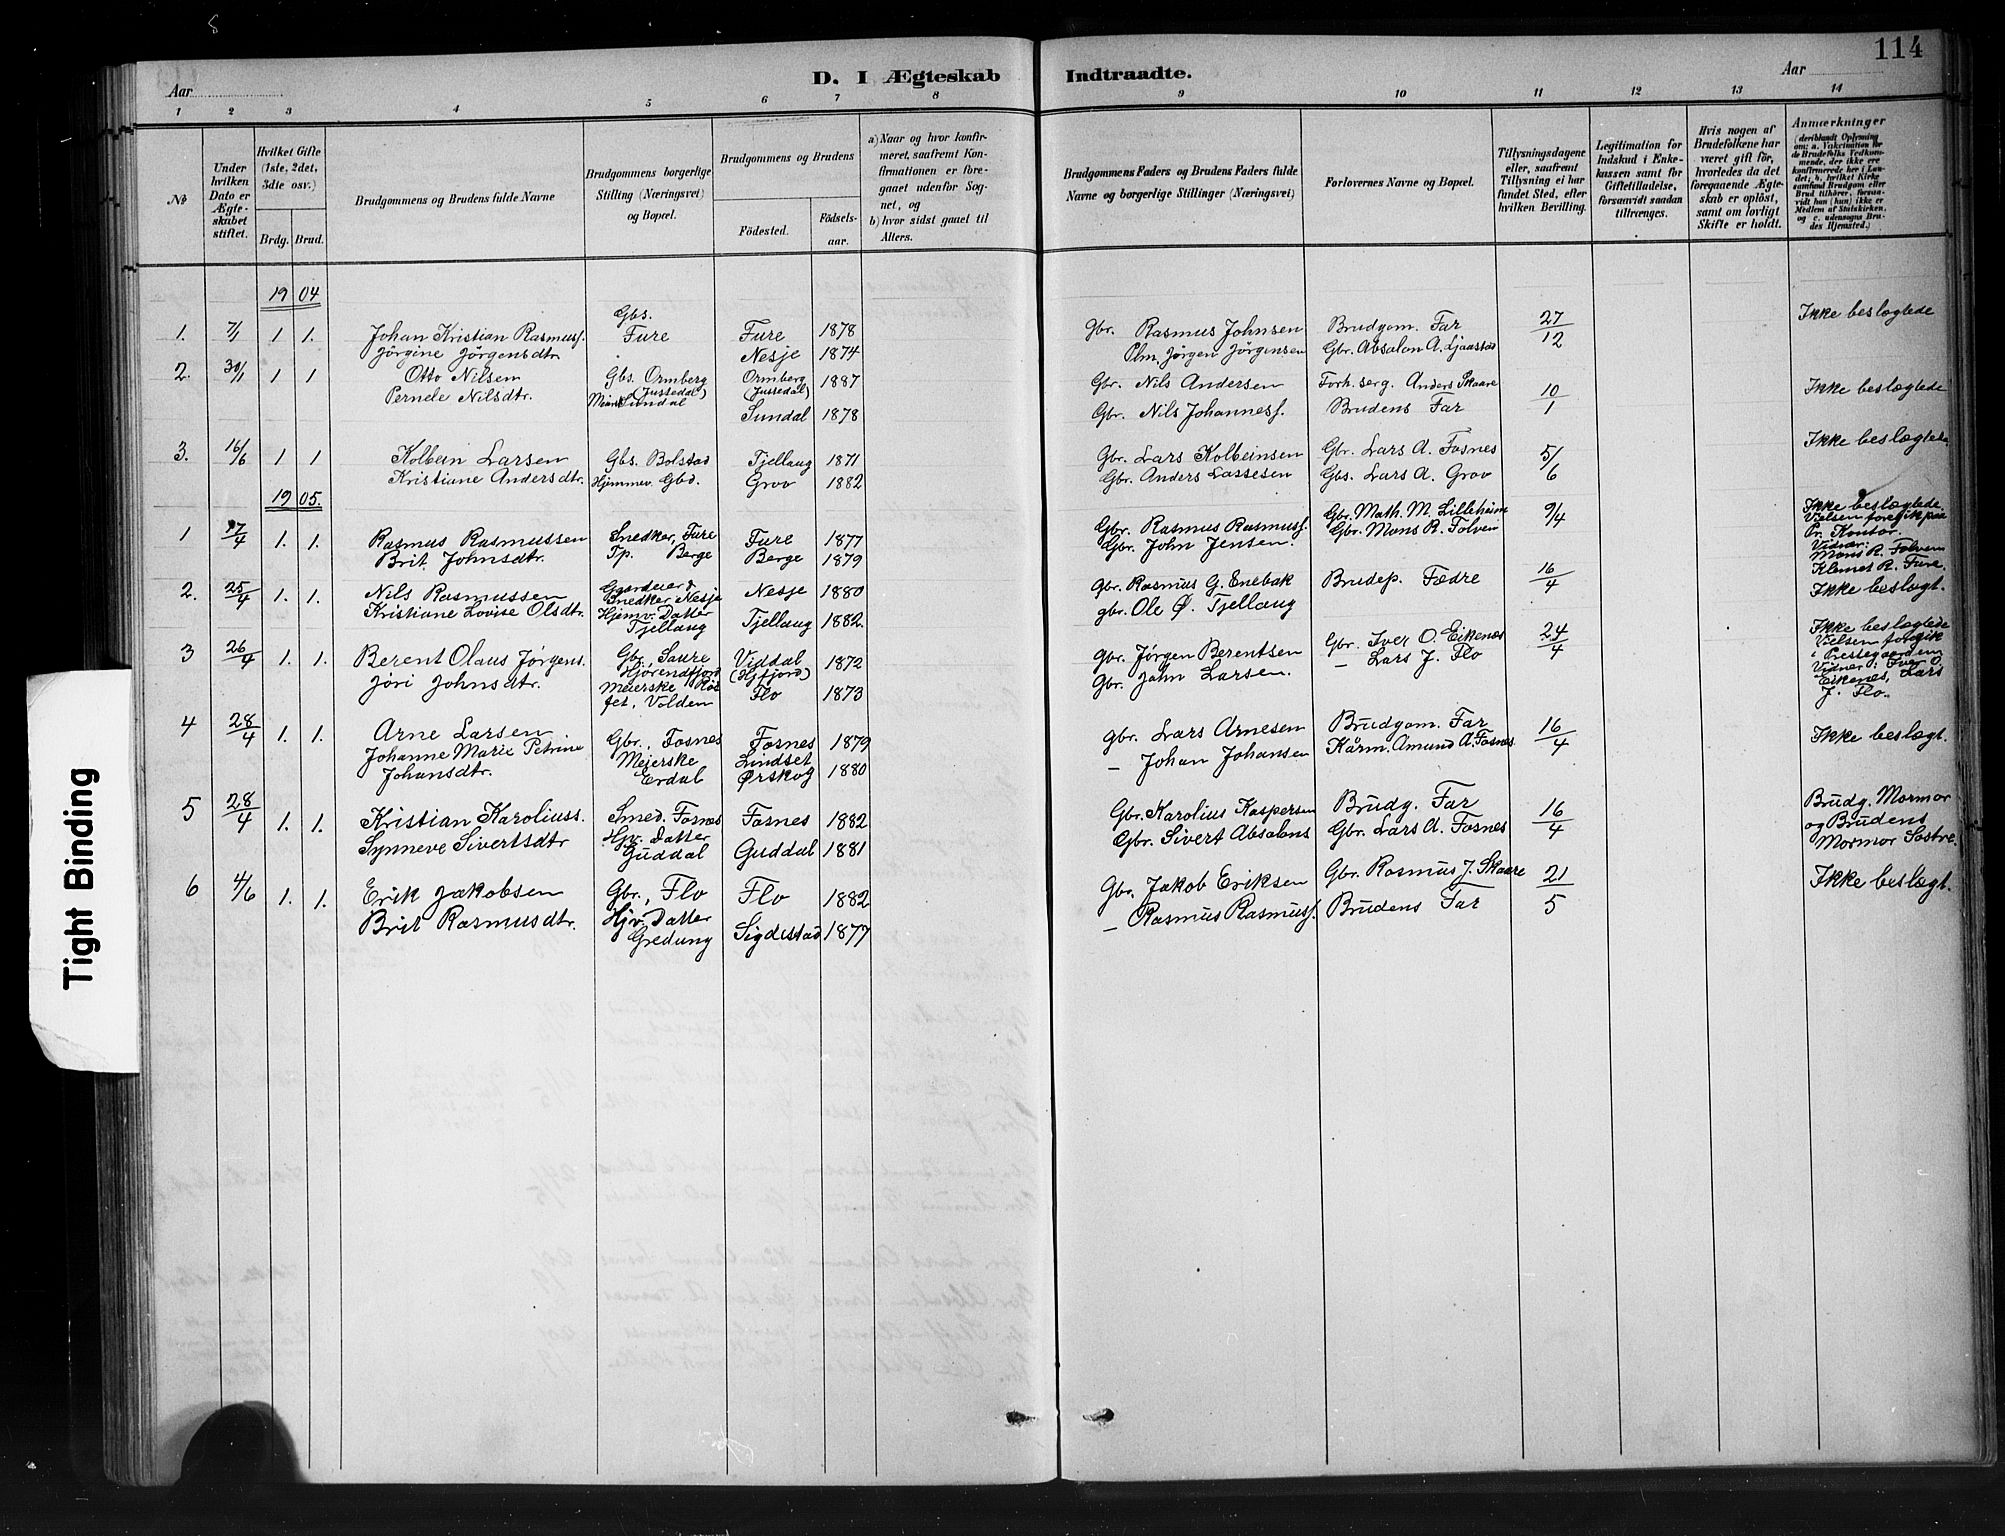 114
D. I Ægteskab Indtraadte.
Aar Aar
1 2 3 4 5 6 7 8 9 10 11 12 13 14
No
Under hvilken Dato er Ægteskabet stiftet.
Hvilket Gifte (1ste, 2det, 3die osv.)
Brdg. Brud.
Brudgommens og Brudens fulde Navne
Brudgommens borgerlige Stilling (Næringsvei) og Bopæl.
Brudgommens og Brudens
Födested. Födselsaar.
a) Naar og hvor konfirmeret, saafremt Konfirmationen er foregaaet udenför Sognet, og
b) hvor sidst gaaet til Alters.
Brudgommens Faders og Brudens Faders fulde Navne og borgerlige Stillinger (Næringsvei)
Forlovernes Navne og Bopæl.
Tillysningsdagene eller, saafremt Tillysning ei har fundet Sted, efter hvilken Bevilling.
Legitimation for Indskud i Enkekassen samt for Giftetilladelse, forsaavidt saadan tiltrænges.
Hvis nogen af Brudefolkene har været gift för, hvorledes da det foregaaende Ægteskab er oplöst, samt om lovligt Skifte er holdt.
Anmærkninger
(deriblandt Oplysning om: a. Vakcination for de Brudefolks Vedkommende, der ikke ere konfirmerede her i Landet; b. hvilket Kirkesamfund Brudgom eller Brud tilhörer, forsaavidt han (hun) ikke er Medlem af Statskirken, og c. udensogns Brudes Hjemsted.)
1904
1. 7/1 1 1. Johan Kristian Rasmusf. Gbs. Fure Fure 1878 Gbr. Rasmus Johnsen Brudgom. Far 27/12 Ikke beslægtede
Jörgine Jörgensdtr. Nesje 1874 Plm. Jörgen Jörgensen Gbr. Absalon A. Ljaastad
2. 30/1 1 1 Otto Nilsen Gbs. Ormberg (Jussedal) Ormberg (Jussedal) 1887 Gbr. Nils Andersen Forh. serg. Anders Skaare 10/1 Ikke beslægtede
Pernele Nilsdtr. Sundal Sundal 1878 Gbr. Nils Johannesf. Brudens Far
3. 16/6 1 1 Kolbein Larsen Gbs. Bolstad Tjellaug 1871 Gbr. Lars Kolbeinsen Gbr. Lars A. Fosnes 5/6 Ikke beslægtede
Kristiane Andersdtr. Hjemmev. Gbd. Grov 1882 Gbr. Anders Lassesen Gbs. Lars A. Grov
1905.
1 27/4 1. 1. Rasmus Rasmussen Snedker, Fure Fure 1877 Gbr. Rasmus Rasmusf. Gbr. Math. M. Lilleheim 9/4 Ikke beslægtede. Vielsen foregik paa Pr. Kontor. Vidner: Mons R. Folven Klemet R. Fure.
Brit Johnsdtr. Tp. Berge Berge 1879 Gbr. John Jensen. Gbr. Mons R. Folven
2. 25/4 1. 1. Nils Rasmussen Gaardeier & Snedker Nesje Nesje 1880 Gbr. Rasmus G. Enebak Brudep. Fædre 16/4 Ikke beslægt.
Kristiane Lovise Olsdtr. Hjemv. Datter Tjellaug Tjellaug 1882. gbr. Ole Ø. Tjellaug
3 26/4 1. 1. Berent Olaus Jörgens. Gbr. Saure Hjörendfjord Viddal (Hjfjord) 1872 gbr. Jörgen Berentsen Gbr. Iver O. Eikenes 24/4 Ikke beslægtede Vielsen foregik i Prestegaarden Vidner: Iver O. Eikenes, Lars J. Flo.
Jöri Johnsdtr. Meierske Röfet, Volden Flo 1873 Gbr. John Larsen. – Lars J. Flo
4 28/4 1. 1. Arne Larsen Gbr., Fosnes Fosnes 1879 gbr. Lars Arnesen Brudgom. Far 16/4 Ikke beslægt.
Johanne Marie Petrine Johansdtr. Meierske Erdal Lindset Ørskog 1880 – Johan Johansen Kårm. Amund A. Fosnes
5 28/4 1. 1. Kristian Karoliuss. Smed. Fosnes Fosnes 1882 Gbr. Karolius Kaspersen Brudg. Far 16/4 Brudg. Mormor og Brudens Mormor Söstre.
Synneve Sivertsdtr Hjv. Datter Guddal Guddal 1881 Gbr. Sivert Absalons Gbr. Lars A. Fosnes
6 4/6 1. 1. Erik Jakobsen Gbr., Flo Flo 1882 Gbr. Jakob Eriksen Gbr. Rasmus J. Skaare 21/5 Ikke beslægt.
Brit Rasmusdtr. Hjv. Datter Gredung Sigdestad 1877 – Rasmus Rasmusf. Brudens Far
Tight Binding